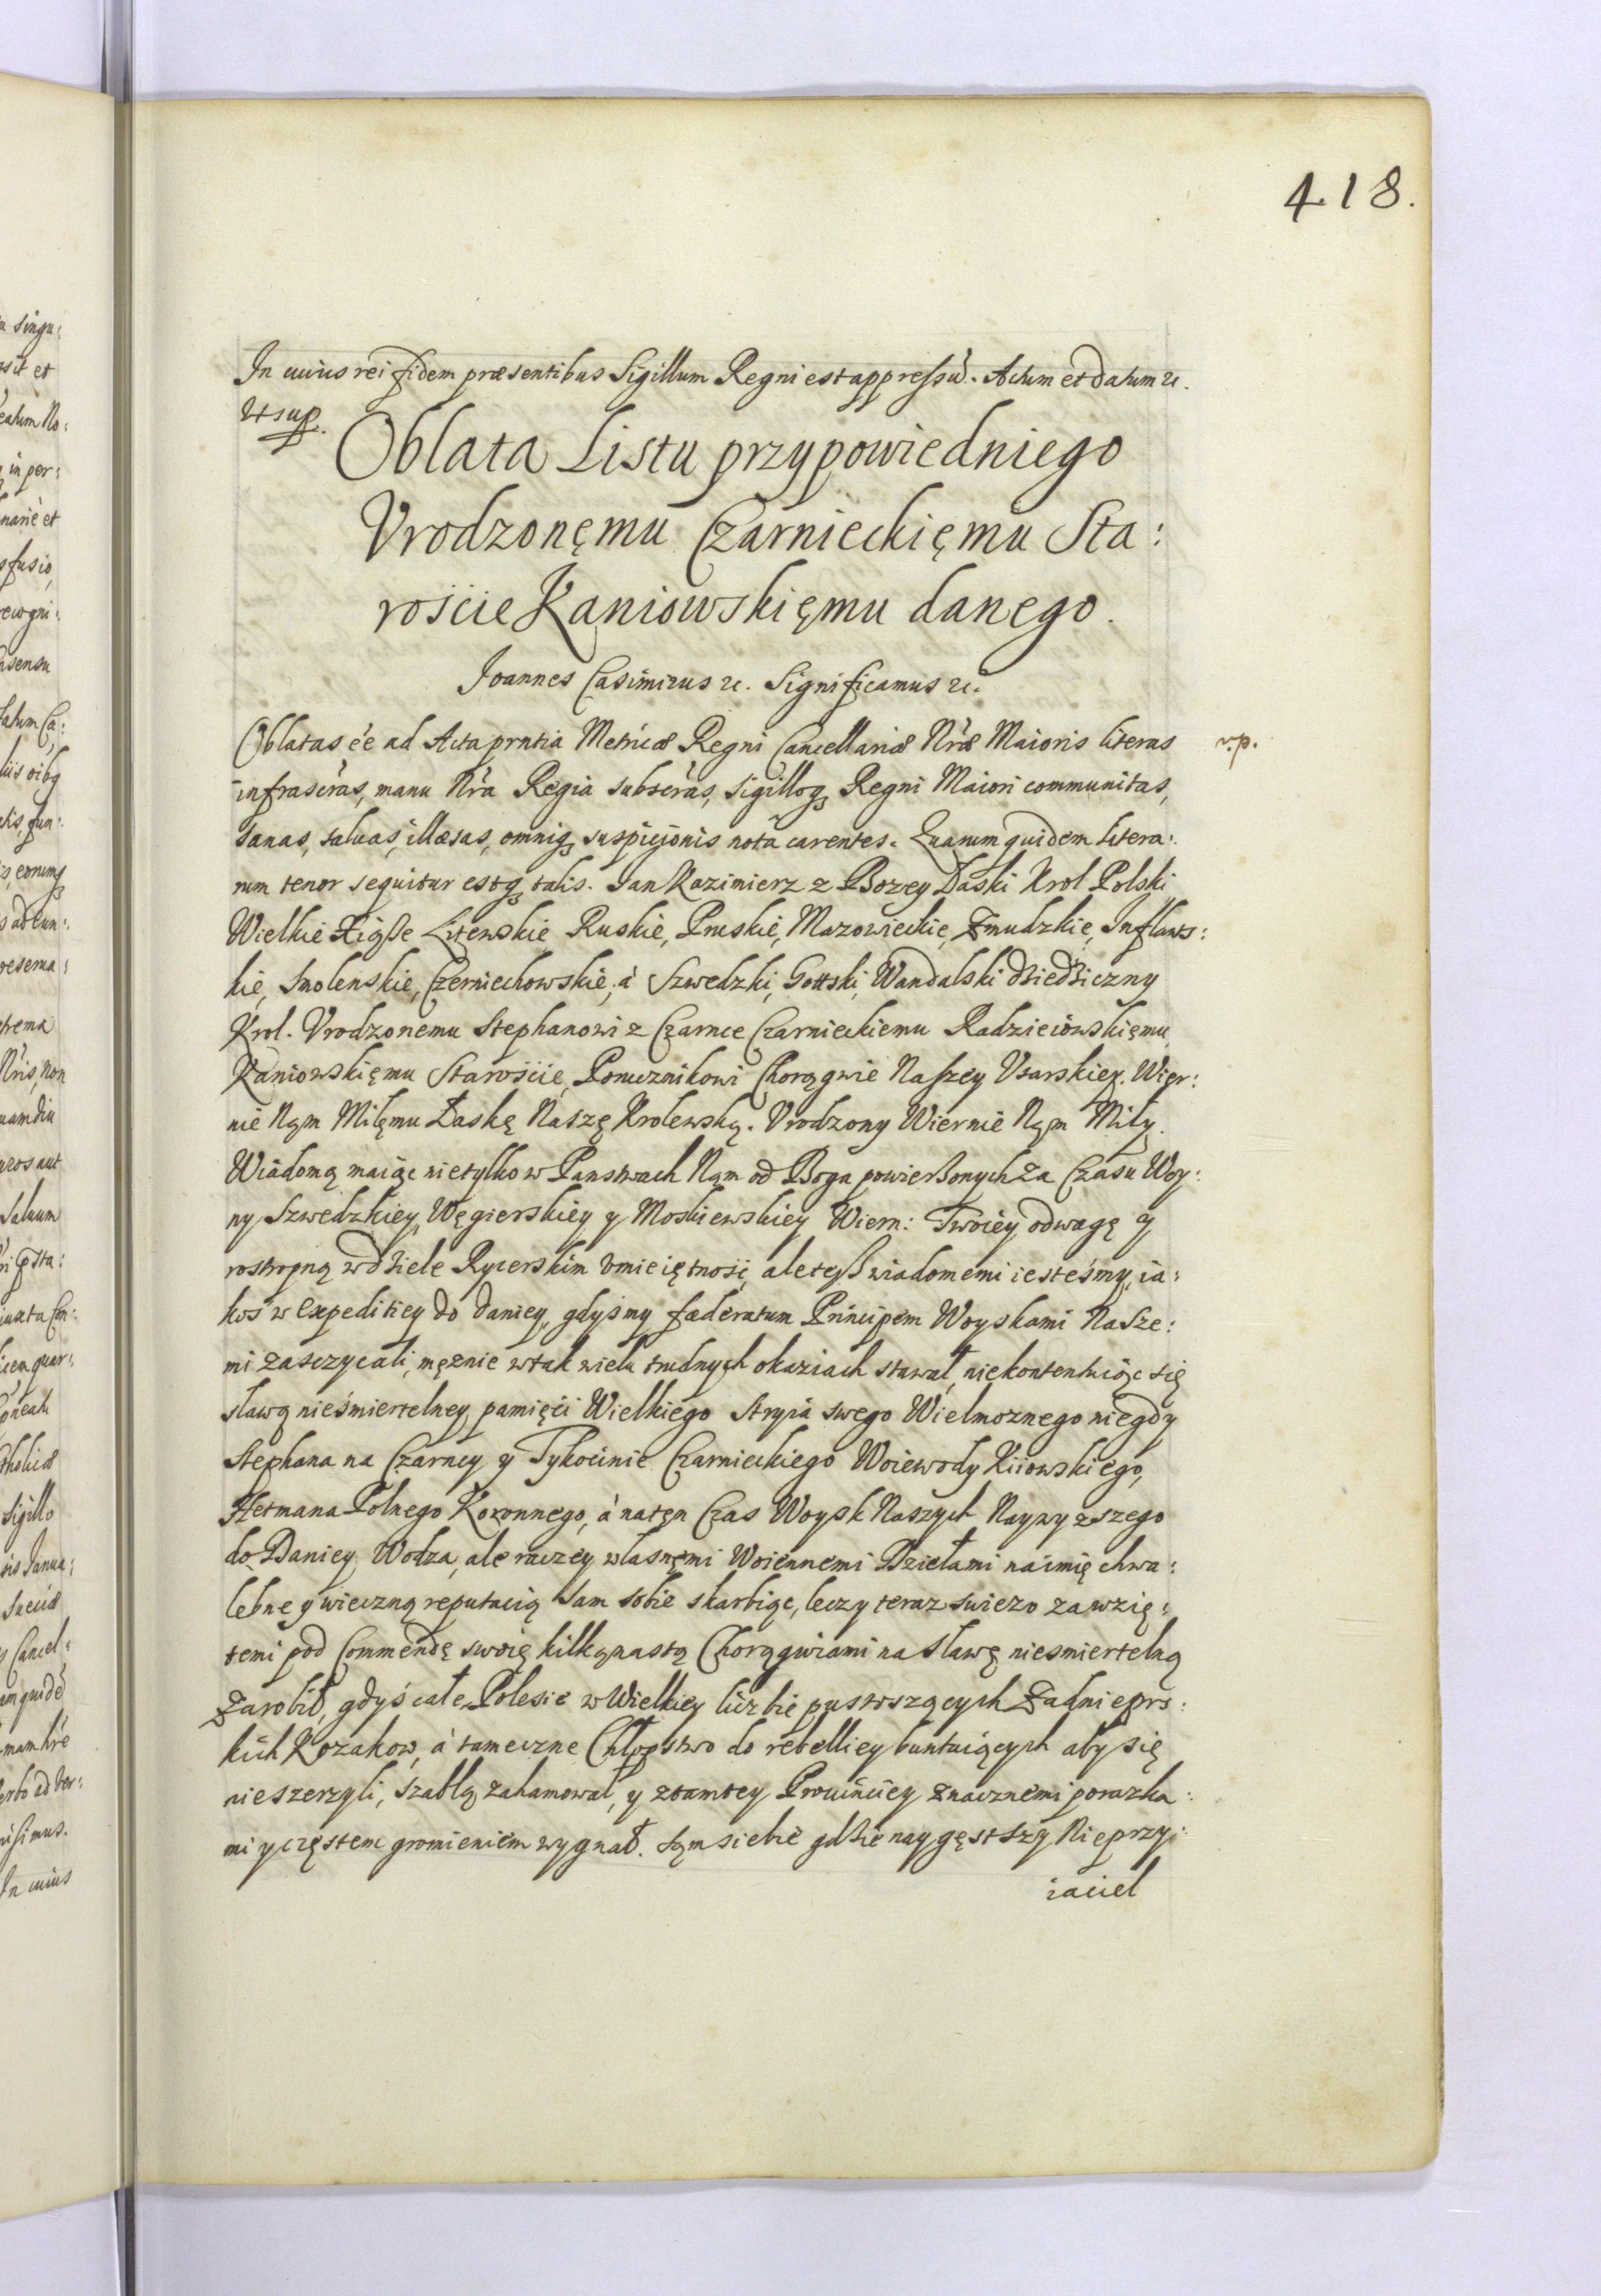 418.
In cuius rei fidem præsentibus Sigillum Regni est appressũ. Actum et datum ꝛc.
Vt sup.
Oblata Listu przypowiedniego
Vrodzonęmu Czarnieckięmu Sta:
rościeKaniowskięmu danego.
Joannes Casimirus ꝛc. Significamus ꝛc.
Oblatas eẽ ad Acta prntia Metricæ Regni Cancellariæ Nr̃æ Maioris literas
r.p.
infrascr̃as, manu Nr̃a Regia subscr̃as, sigilloqȝ Regni Maiori communitas,
sanas, saluas, illæsas, omniqȝ suspicionis nota carentes. Quarum quidem litera:
rum tenor sequitur estqȝ talis. Jan Kazimierz z Bozey Łaski Krol Polski
Wielkie Xiąße Litewskie, Ruskie, Pruskie, Mazowieckie, Zmudzkie, Inflans:
kie, Smolenskie, Czerniechowskie, á Szwedzki, Gottski, Wandalski dźiedźiczny
Krol. Vrodzonemu Stephanowi z Czarnce Czarnieckiemu Radzieiowskięmu,
Kaniowskięmu Starościę, Porucznikowi Chorągwie Naszey Vsarskiey. Wier:
nie Nąm Miłęmu Łaskę Naszę Krolewską. Vrodzony Wiernie Nąm Miły.
Wiadomą maiąc nietylko w Panstwach Nąm od Boga powierßonych za Czasu Woy:
ny Szwedzkiey, Węgierskiey y Moskiewskiey Wiern: Twoiey odwagę y
rostropną w dźiele Rycerskim vmieiętność, ale teyß wiadomemi iesteśmy, ia:
koś w Expeditiey do Daniey, gdyśmy fæderatum Principem Woyskami Nasze:
mi zasczycali, męznie w tak wielu trudnych okaziach stawał, niekontentuiąc się
sławą nieśmiertelney pamięći Wielkiego Stryia swego Wielmoznego niegdy
Stephana na Czarncy y Tykocinie Czarnieckiego Woiewody Kiiowskiego,
Hetmana Polnego Koronnego, á natęn Czas Woysk Naszych Naywyzszego
do Daniey Wodza, ale raczey własnęmi Woiennemi Dziełami naimię chwa:
lebne y wieczną reputacią sam sobie skarbiąc, leczy teraz swiezo zawzię:
temi pod Commendę swoię kilkąnastą Chorągwiami na sławę niesmiertelną
zarobił, gdyś całe Polesie w Wielkiey liczbie pustoszących Zadnieprs:
kich Kozakow, á tameczne Chłopstwo do rebelliey buntuiących aby się
nieszerzyli, szablą zahamował, y ztamtey Prouinciey znacznemi porazka:
mi y częstem gromieniem wygnał. sąm siebie gdźie naygęstszy Nieprzy:
iaciel